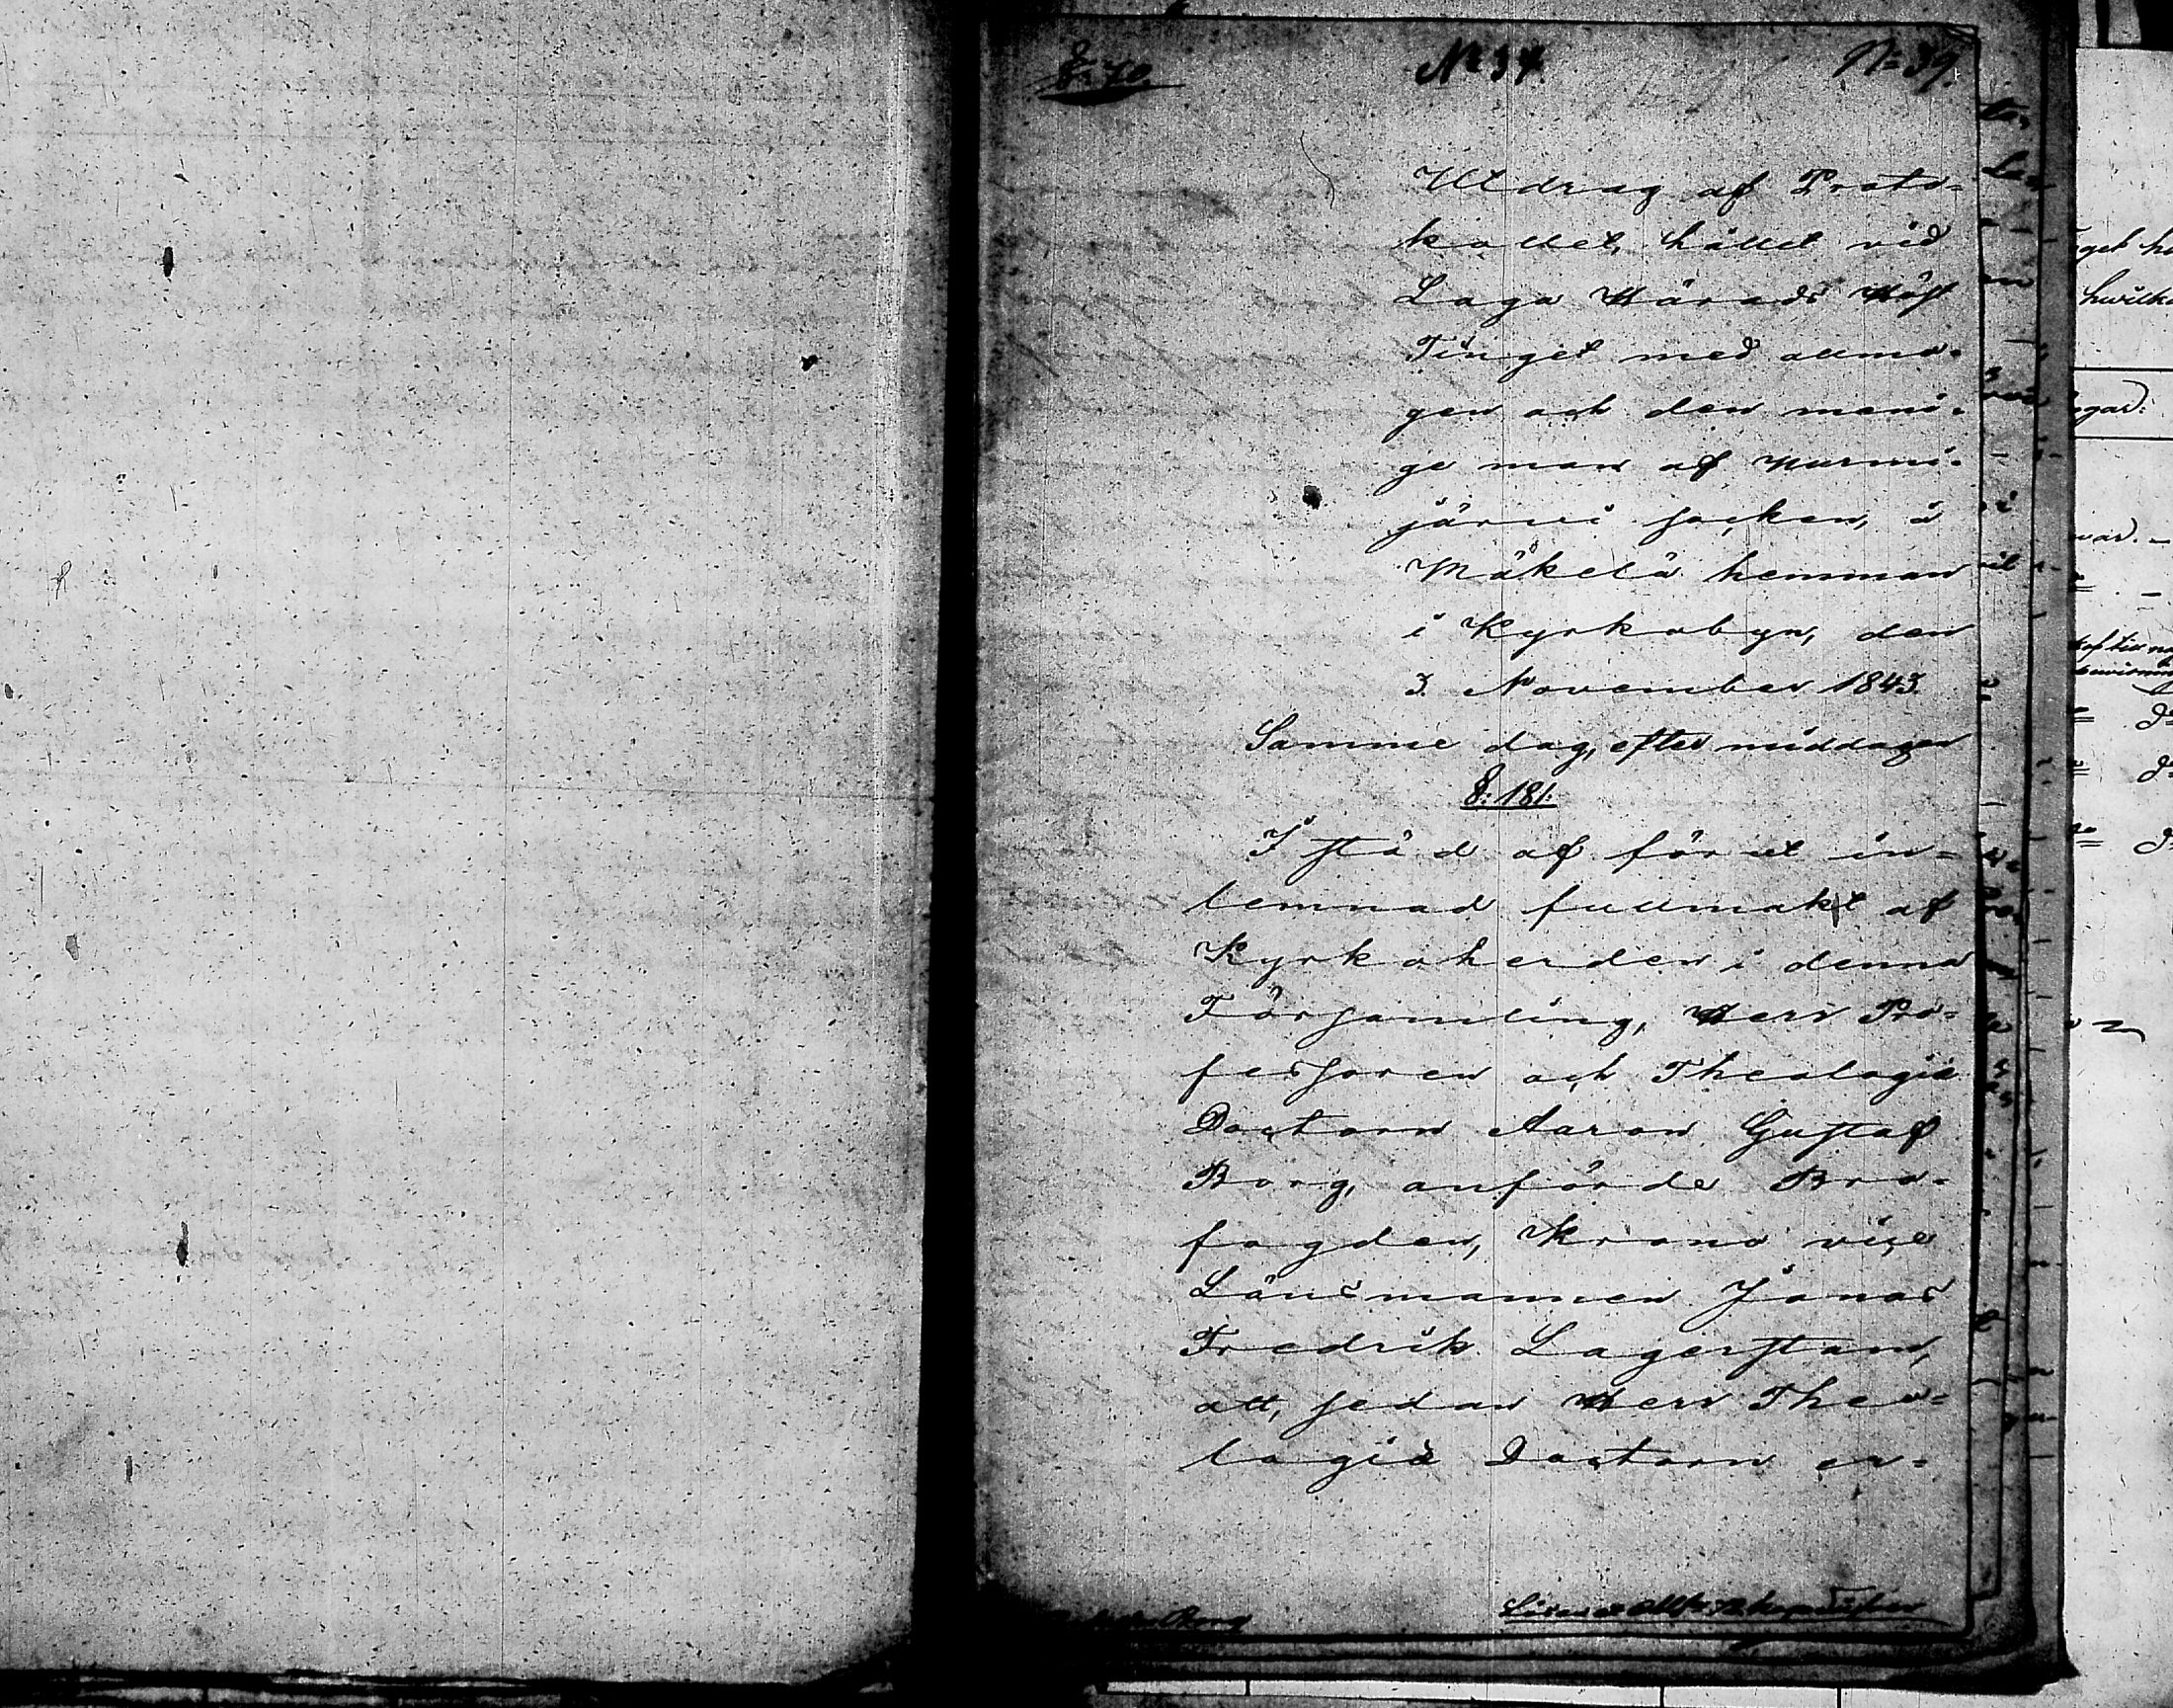 N: 39.
Utdrag af Proto-
kollet, hållet vid
Laga Härads Höst
Tinget med allmo-
gen och den meni-
ge man af Nurmi-
järwi socken, å
Mäkelä hemman
i Kyrkobyn, den
3. November 1843.
Samme dag, eftermiddagen
§: 181:
I stöd af förut in-
lemnad fullmakt af
Kyrkoherden i denna
Församling, Herr Pro-
fessoren och Theologiæ
Doctorn Aaron Gustaf
Borg, anförde Bro-
fogden, Krono vice
Länsmannen Jonas
Fredrik Lagerstam,
att, sedan Herr Theo-
logiæ Doctorn er-